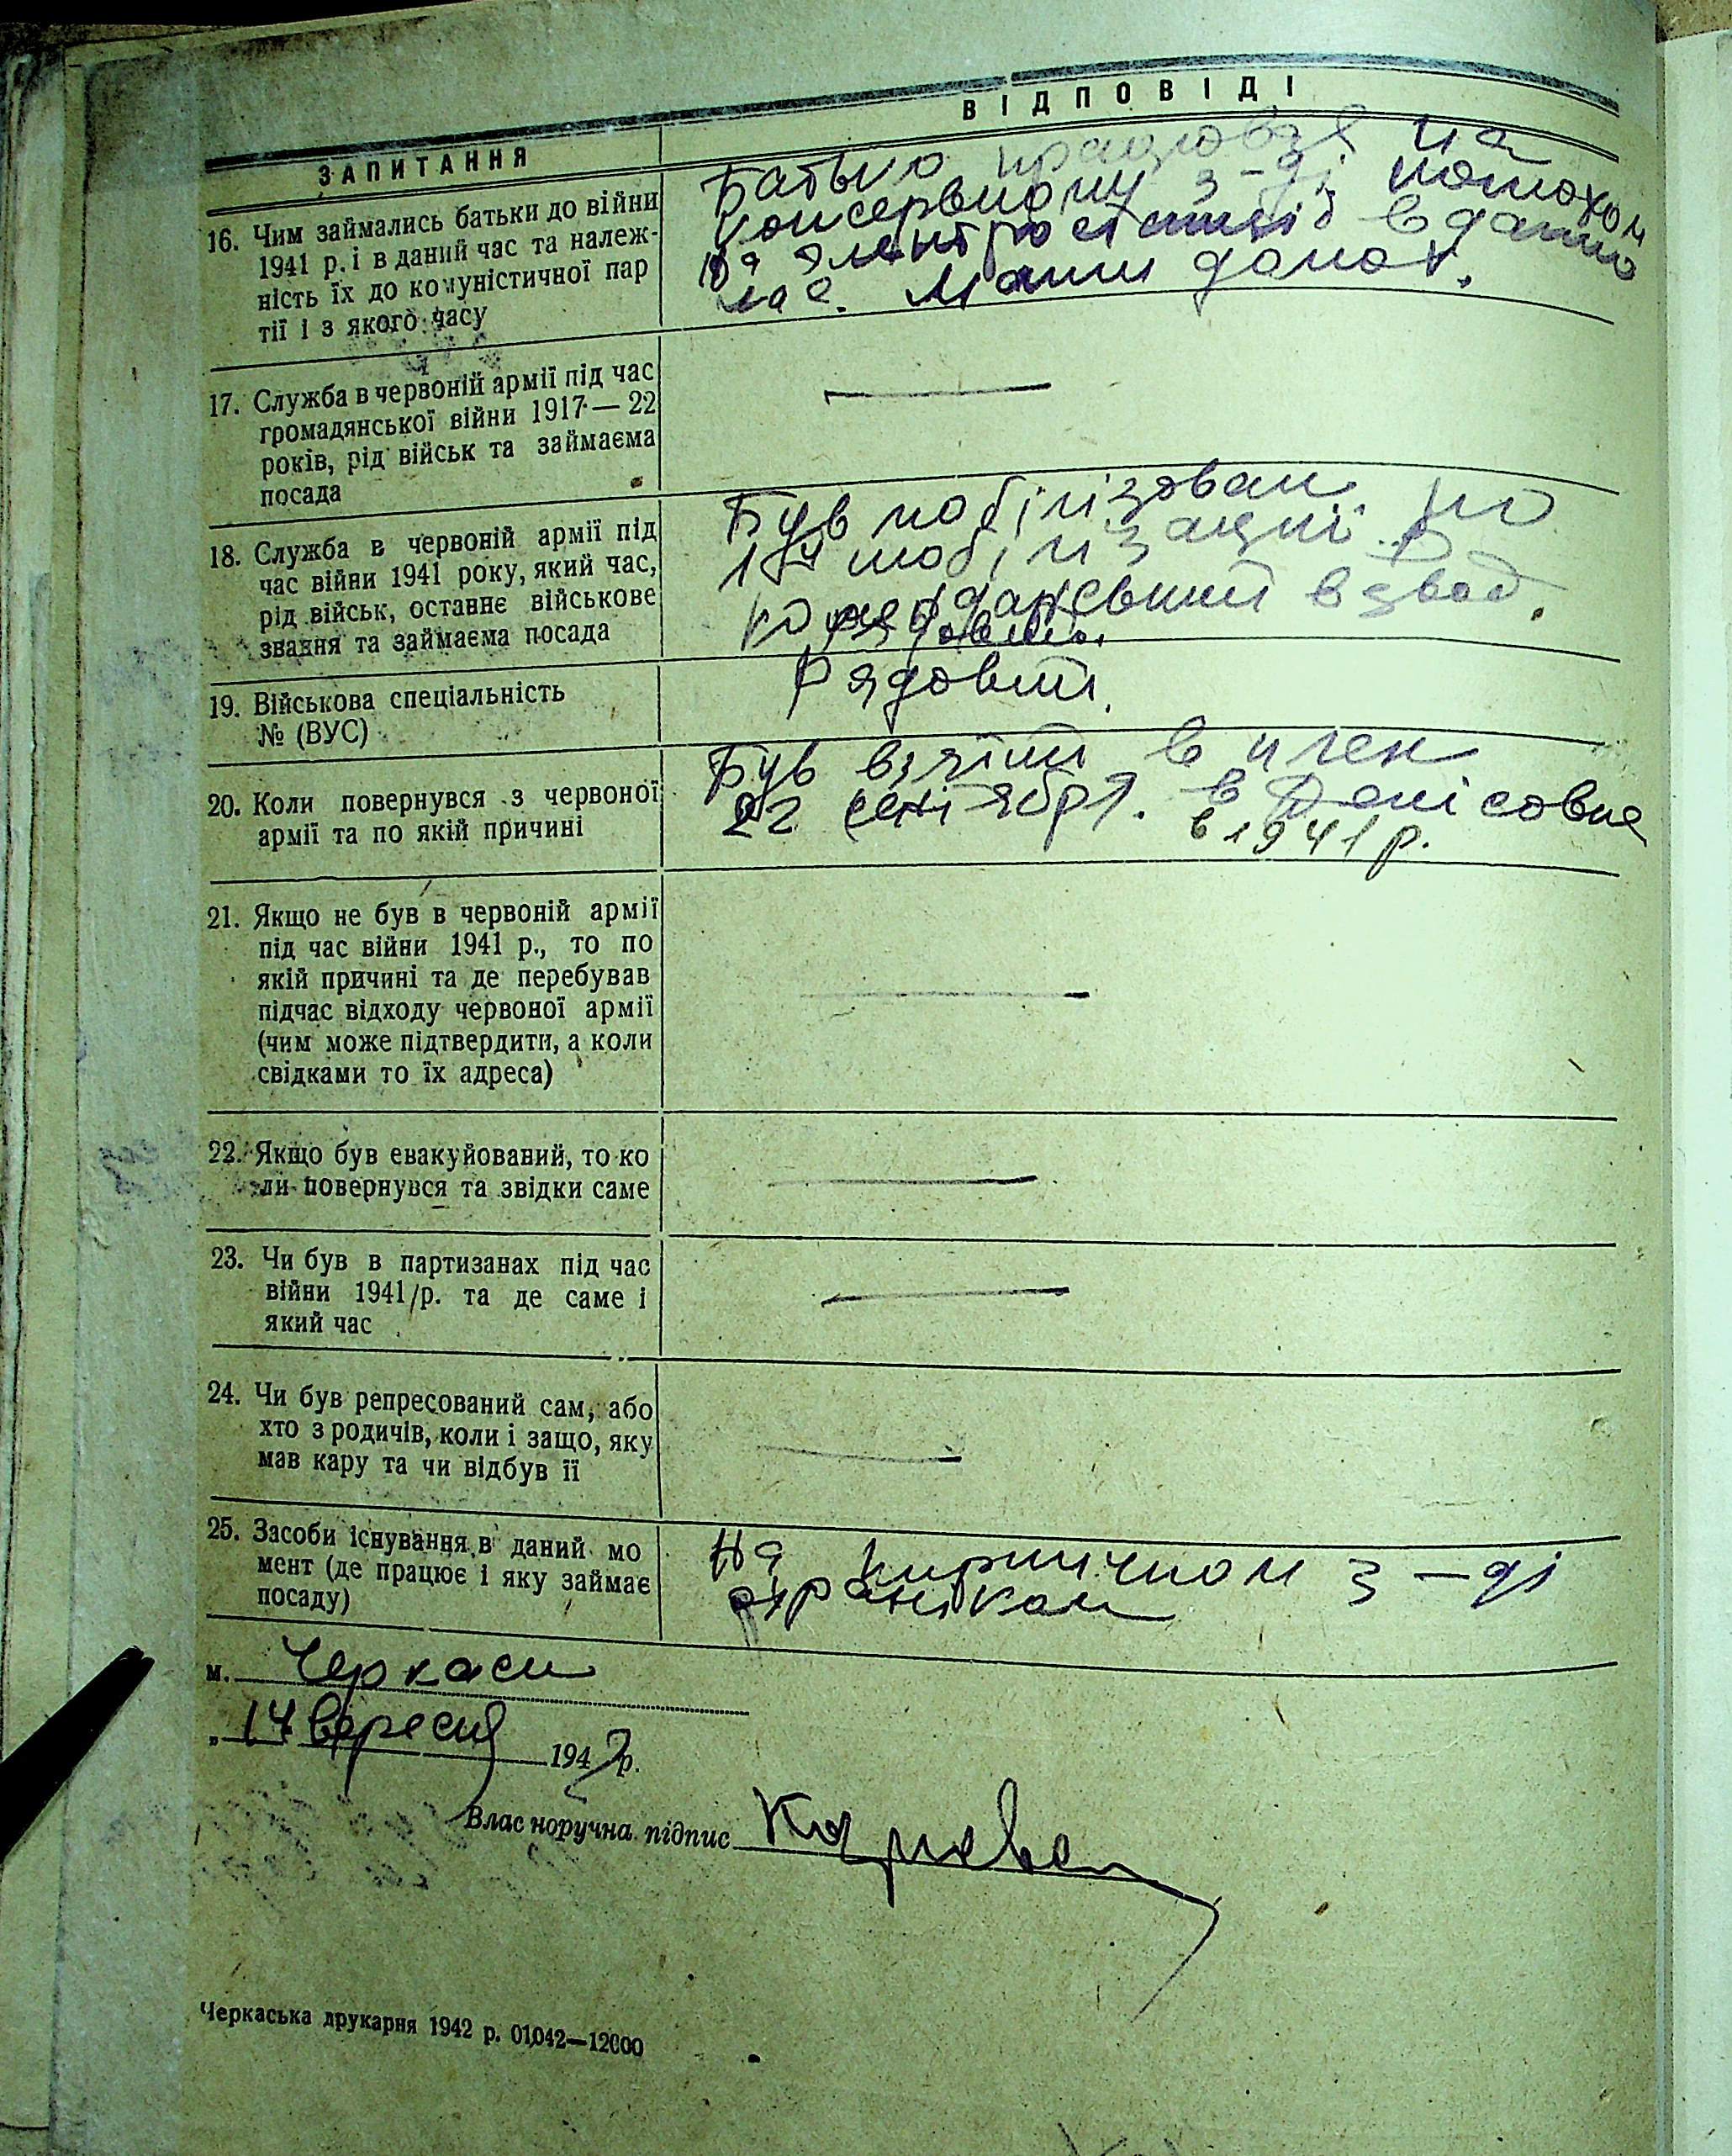 ЗАПИТАННЯ
ВІДПОВІДІ
16. Чим займались батьки до війни
1941 р. і в даний час та належ-
ність їх до комуністичної пар
тії і з якого часу
Батько працював на
консервному з-ді
на електростанції в данио
час. Мати домох.
17. Служба в червоній армії під час
громадянської війни 1917 — 22
років, рід військ та займаєма
посада
—
18. Служба в червоній армії під
час війни 1941 року, який час,
рід військ, останнє військове
звання та займаєма посада
Був мобілізован по
мобілізації.
взвод.
19. Військова спеціальність
№ (ВУС)
Рядовий.
20. Коли повернувся з червоної
армії та по якій причині
Був взятий в плен
22 сентября. в Денісовке
в 1941 р.
21. Якщо не був в червоній армії
під час війни 1941 р., то по
якій причині та де перебував
підчас відходу червоної армії
(чим може підтвердити, а коли
свідками то їх адреса)
—
22. Якщо був евакуйований, то ко
ли повернувся та звідки саме
—
23. Чи був в партизанах під час
війни 1941 р. та де саме і
який час
—
24. Чи був репресований сам, або
хто з родичів, коли і защо, яку
мав кару та чи відбув її
—
25. Засоби існування в даний мо
мент (де працює і яку займає
посаду)
На кирпичном з-ді
охраніком
м. Черкаси
„ 14 вересня 1942 р.
Власноручна підпис
Черкаська друкарня 1942 р. 01042—12000